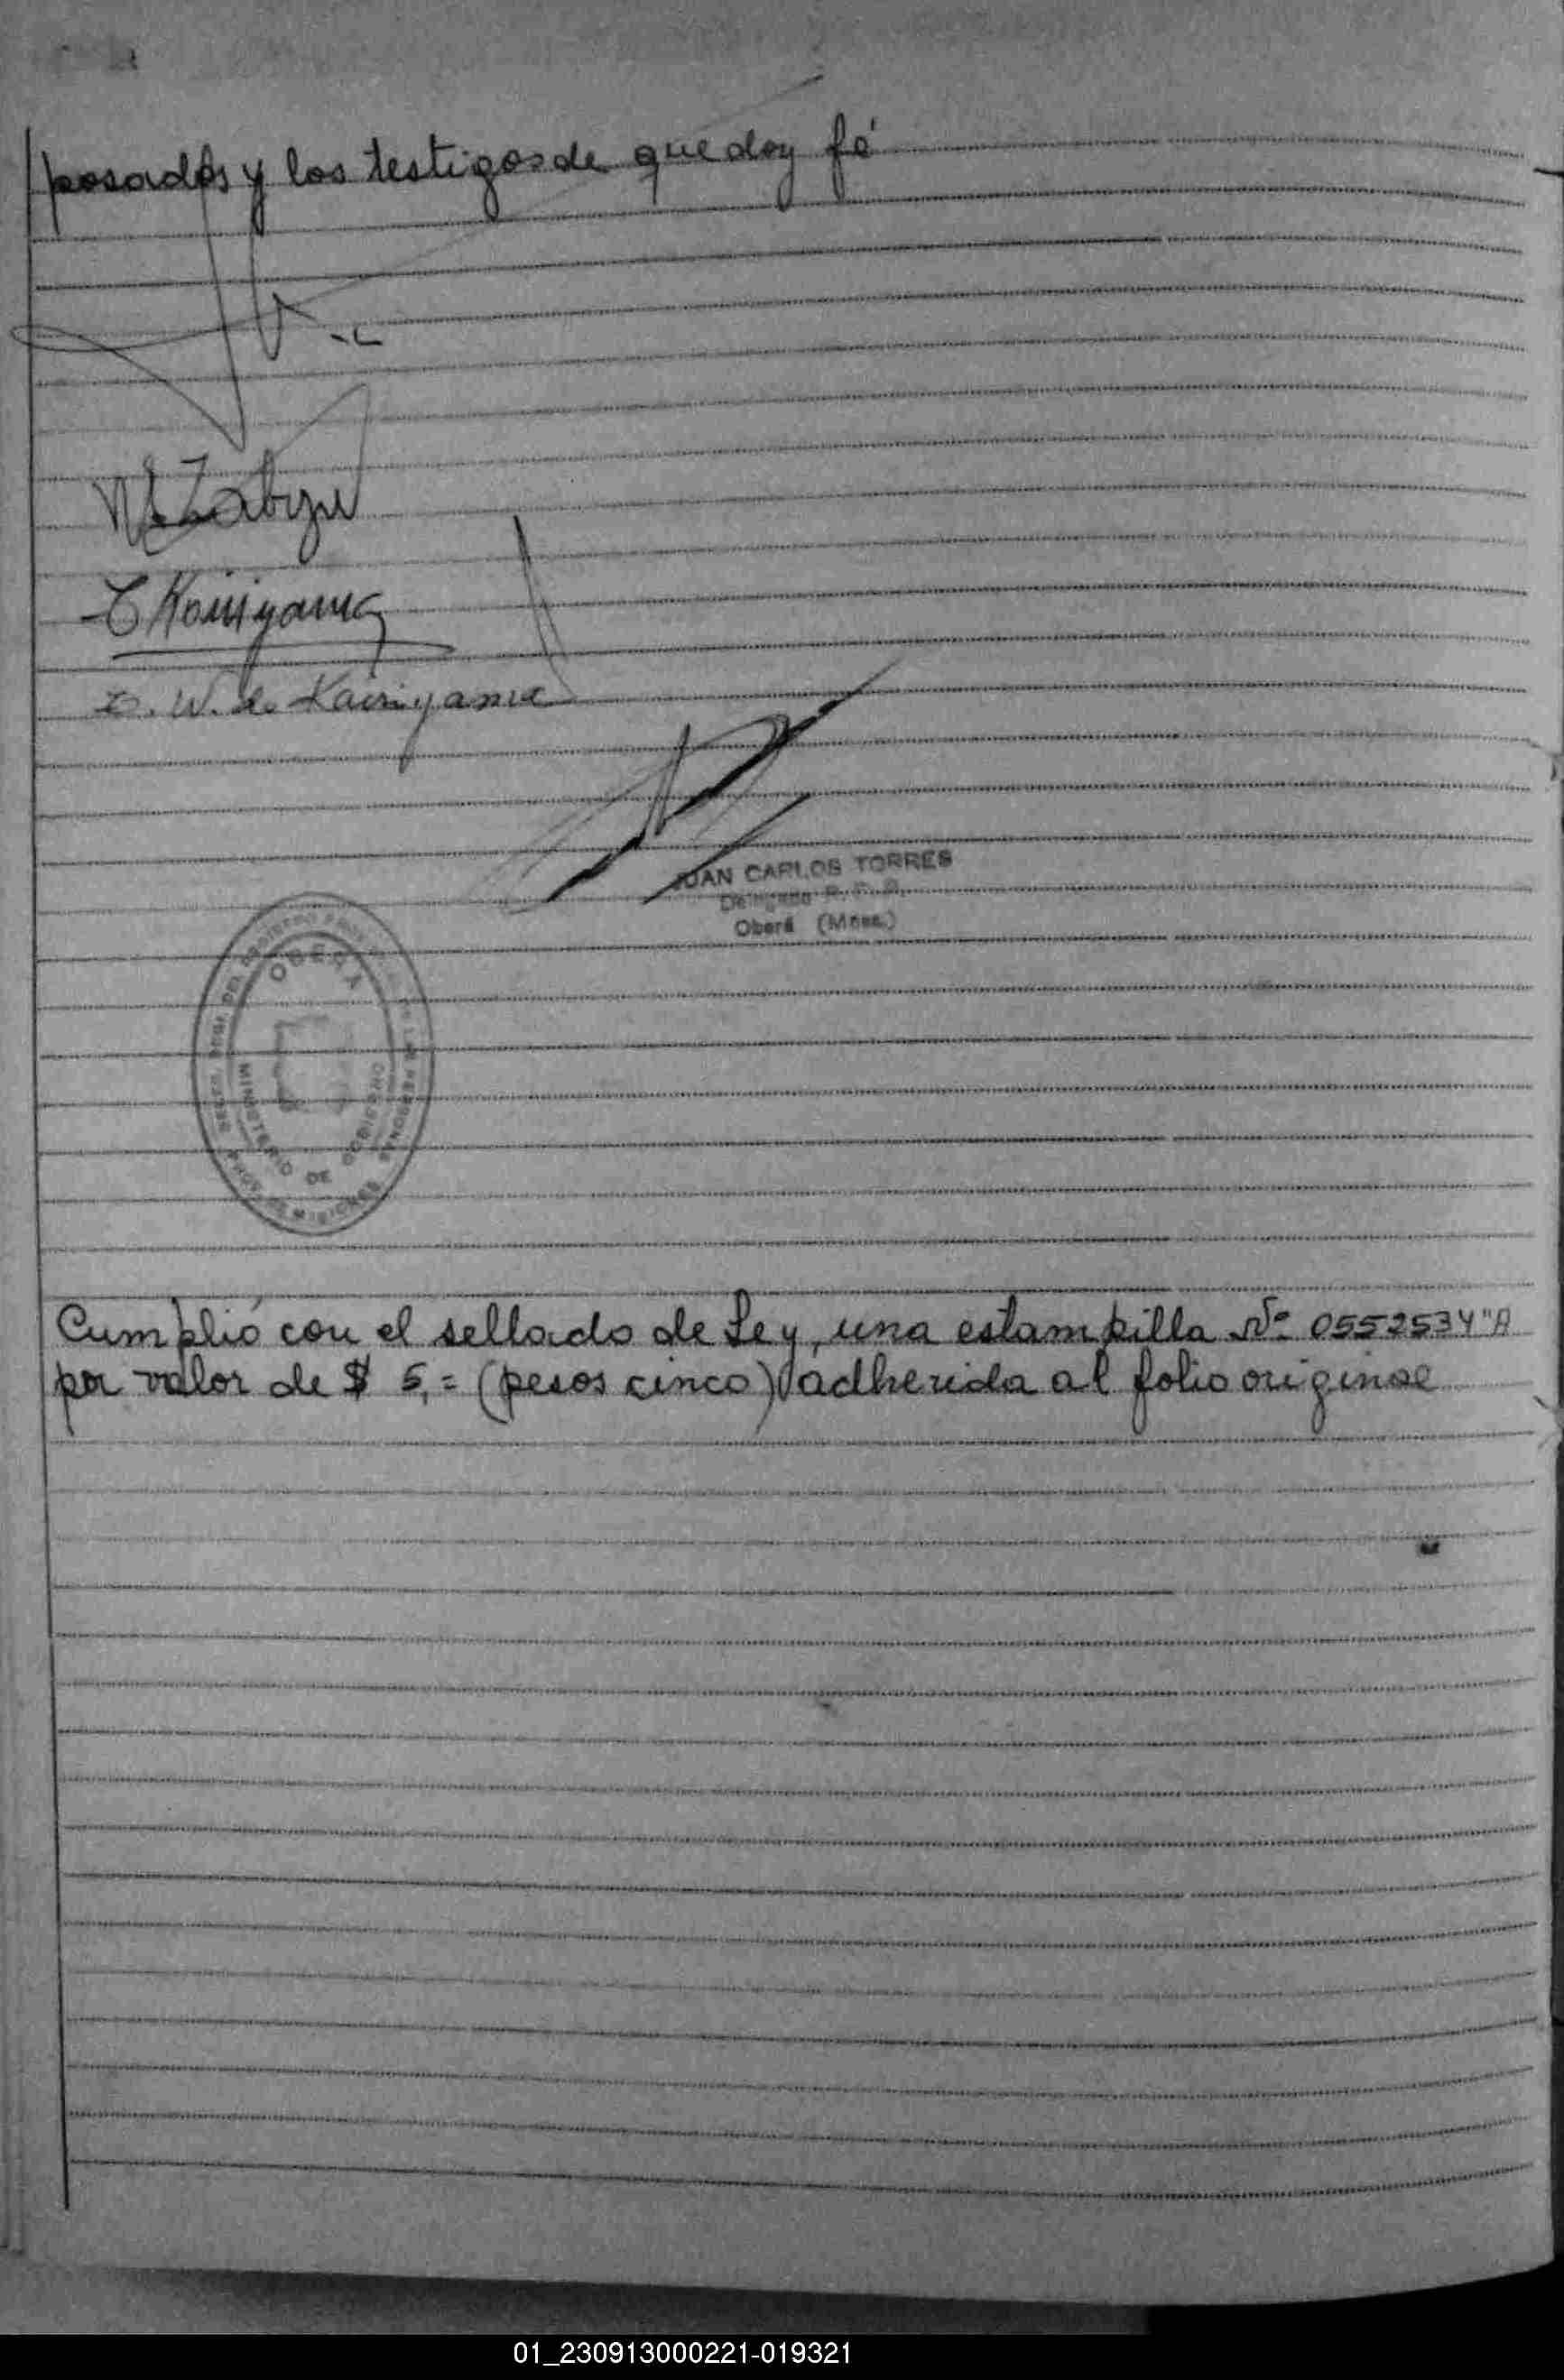 posados y los testigos de que doy fé
C Kairiyama
E. W. de Kairiyama
JUAN CARLOS TORRES
Delegado R. P.
Oberá (Mnes.)
OBERA
MINISTERIO DE GOBIERNO
LAS PERSONAS
MISIONES
Cumplió con el sellado de Ley, una estampilla Nº 0552534 "A
por valor de $ 5,= (pesos cinco) adherida al folio original
01_230913000221-019321